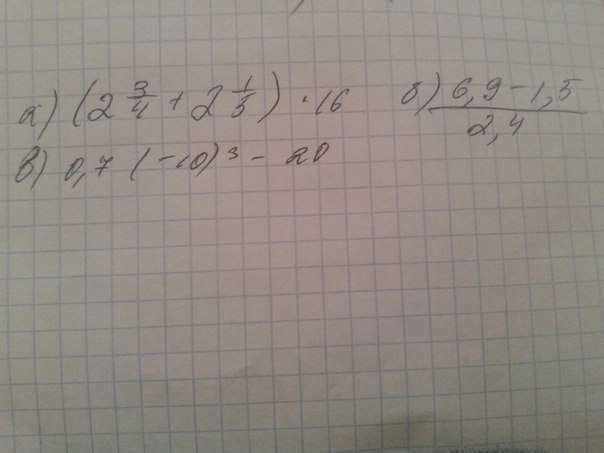 а) (2 3/4 + 2 1/5) · 16 б) (6,9 − 1,5)/2,4
в) 0,7 (−10)³ − 20